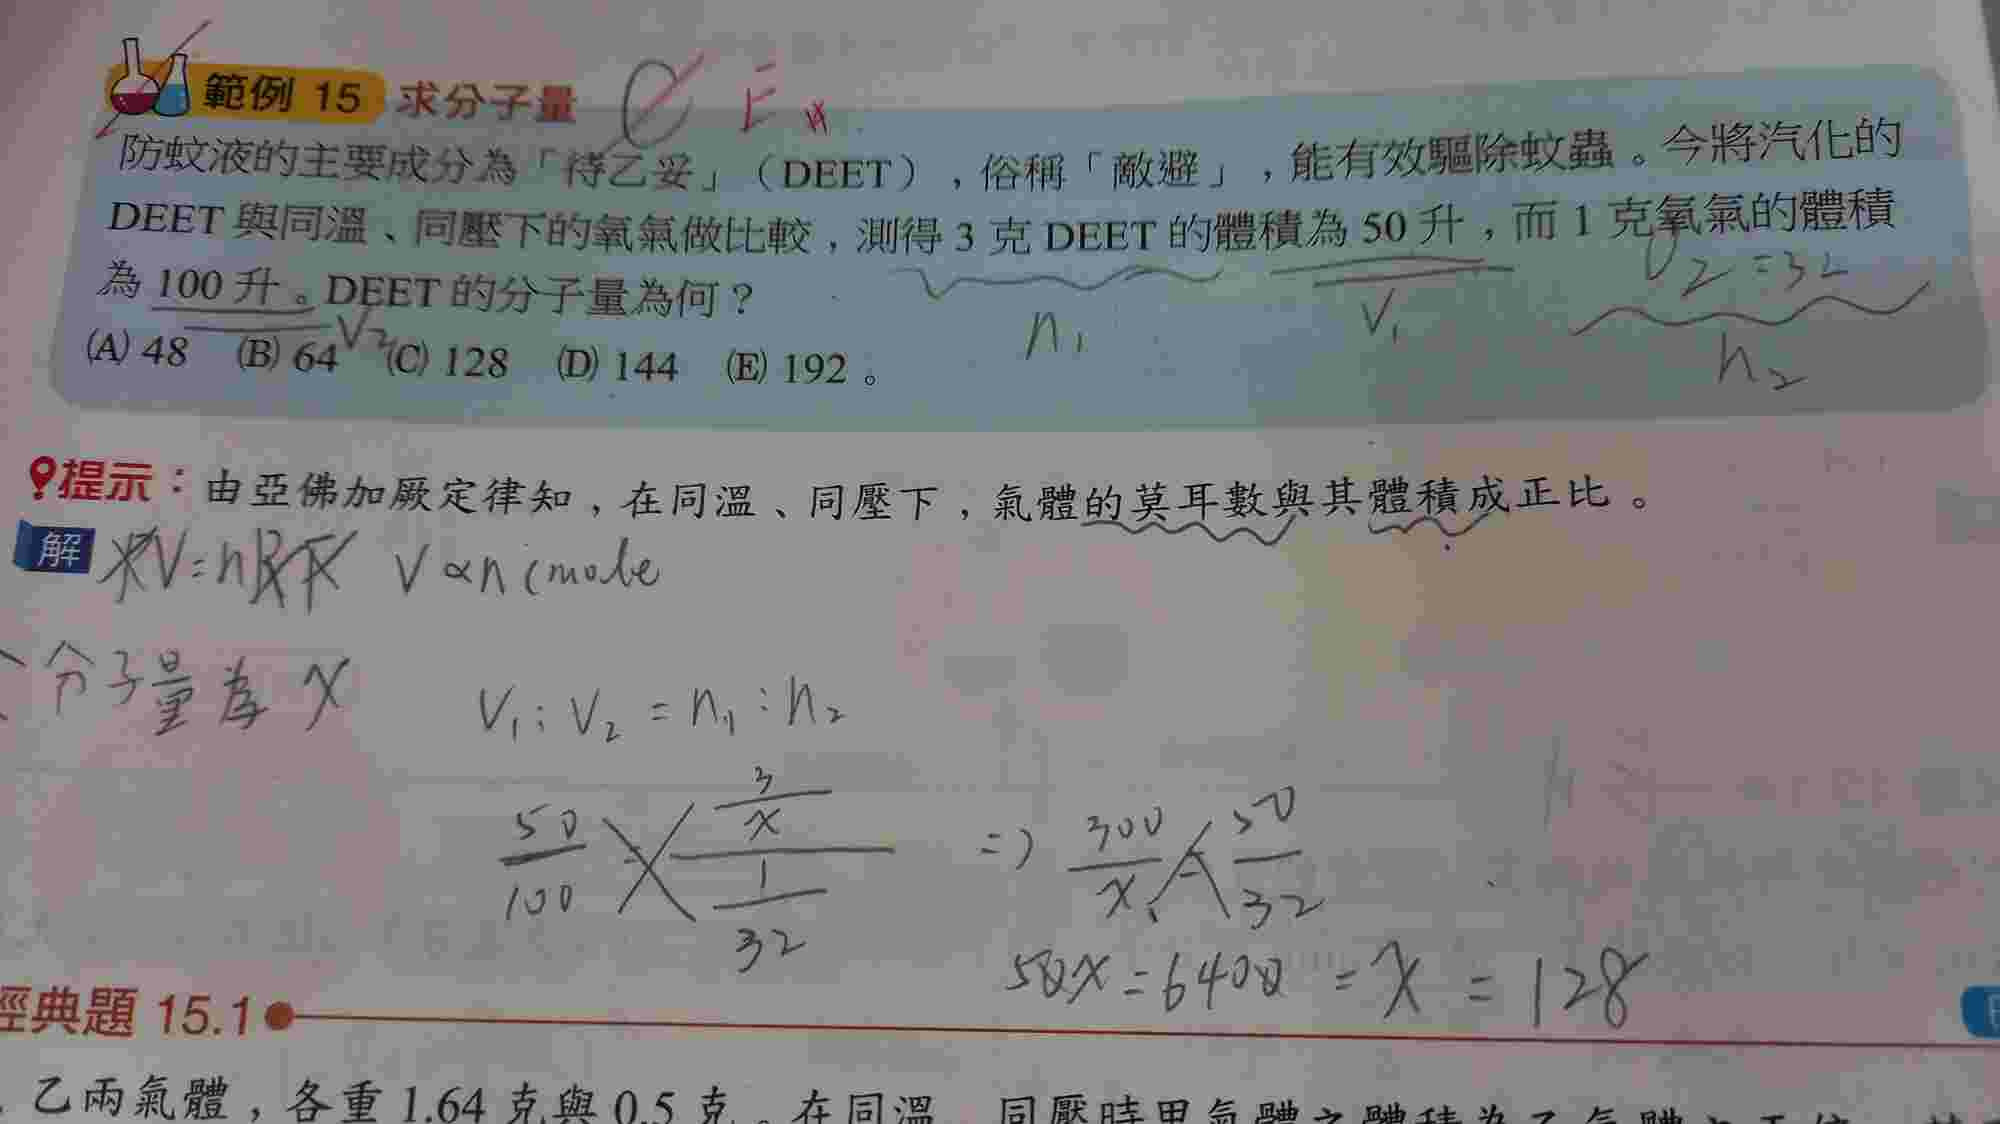 範例 15 求分子量 C E
防蚊液的主要成分為「待乙妥」（DEET），俗稱「敵避」，能有效驅除蚊蟲。今將汽化的
DEET 與同溫、同壓下的氧氣做比較，測得 3 克 DEET 的體積為 50 升，而 1 克氧氣的體積
為 100 升。DEET 的分子量為何？
O2=32
n1 V1 n2
V2
(A) 48 (B) 64 (C) 128 (D) 144 (E) 192 。
提示：由亞佛加厥定律知，在同溫、同壓下，氣體的莫耳數與其體積成正比。
解 PV=nRT V∝n (mole
分子量為 x V1:V2=n1:n2
50/100 3/x / 1/32 => 300/x = 50/32
50x=6400 = x = 128
經典題 15.1
乙兩氣體，各重 1.64 克與 0.5 克。在同溫、同壓時甲氣體之體積為乙氣體之